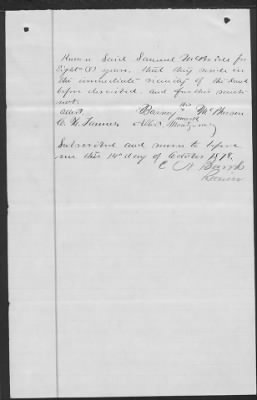 Known Said Samuel McBride for
Eight (8) years, that they reside in
the immediate vicinity of the land
before described, and further saith
not.
Attest. Barney his McPherson
mark
C. N. Albert Montgomery
Subscribed and sworn to before
me this 14th day of October 1878,
C A
Receiver